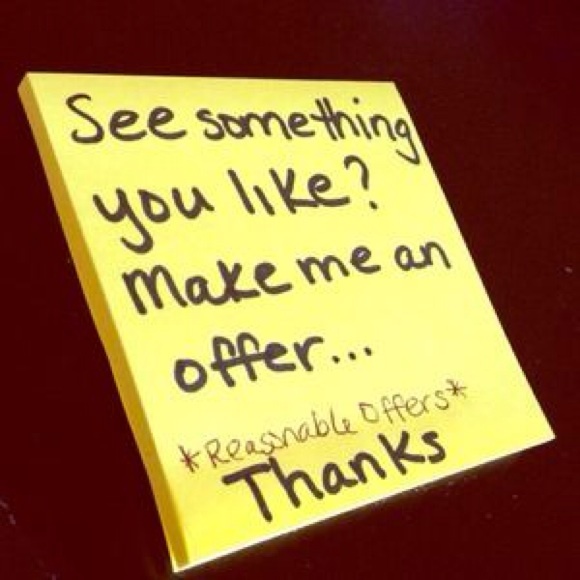 See something
you like?
Make me an
offer...
*Reasonable Offers*
Thanks